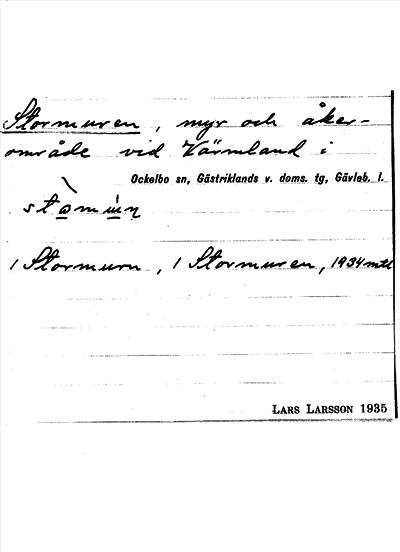 Stormuren, myr och åker-
område vid Värmland i
Ockelbo sn, Gästriklands v. doms. tg, Gävleb. l.
1 Stormurn, 1 Stormuren, 1934 mtl
LARS LARSSON 1935